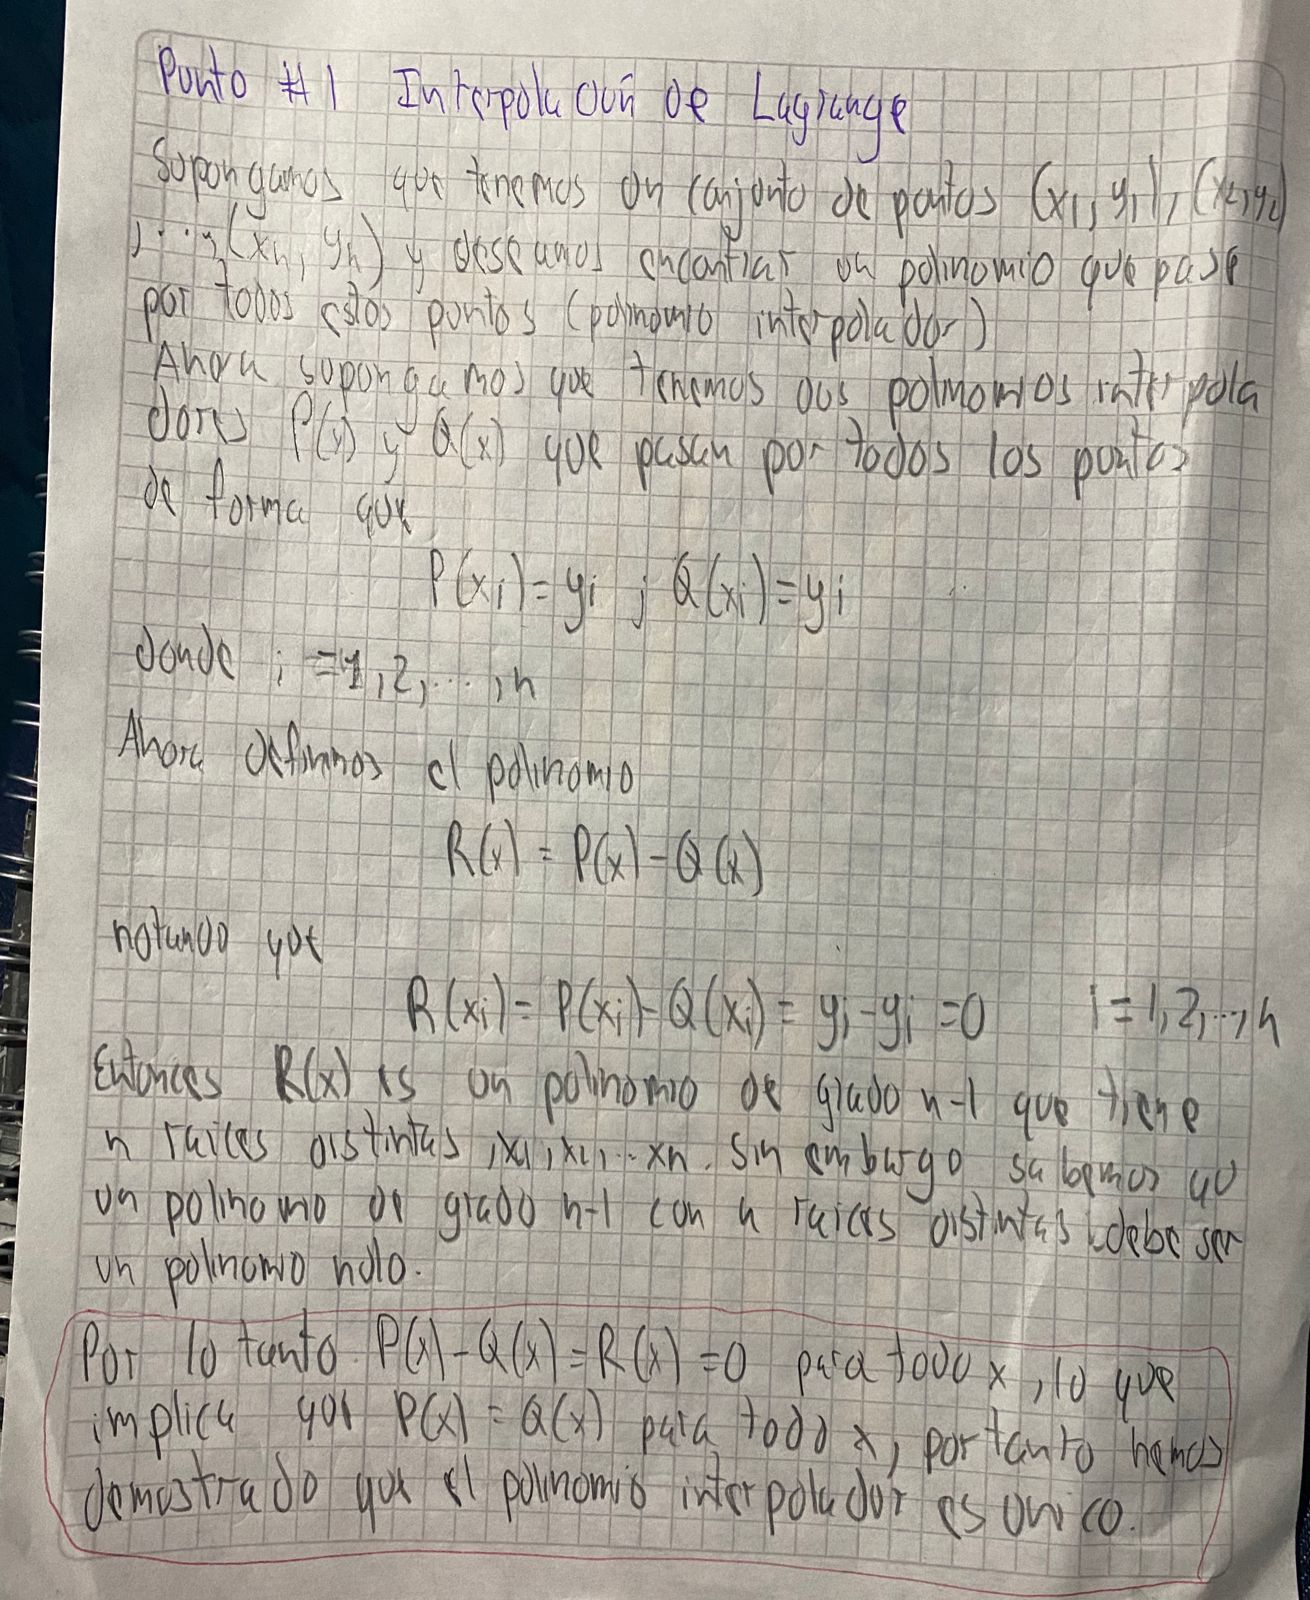 Punto #1 Interpolación de Lagrange
Supongamos que tenemos un conjunto de puntos (x₁, y₁), (x₂, y₂)
, ..., (xₙ, yₙ) y deseamos encontrar un polinomio que pase
por todos estos puntos (polinomio interpolador)
Ahora supongamos que tenemos dos polinomios interpola
dores P(x) y Q(x) que pasan por todos los puntos
de forma que
P(xᵢ) = yᵢ ; Q(xᵢ) = yᵢ
donde i = 1, 2, ..., n
Ahora definimos el polinomio
R(x) = P(x) - Q(x)
notando que
R(xᵢ) = P(xᵢ) - Q(xᵢ) = yᵢ - yᵢ = 0 i = 1, 2, ..., n
Entonces R(x) es un polinomio de grado n-1 que tiene
n raices distintas, x₁, x₂, ... xn. Sin embargo sabemos qu
un polinomio de grado n-1 con n raices distintas debe ser
un polinomio nulo.
Por lo tanto P(x) - Q(x) = R(x) = 0 para todo x, lo que
implica que P(x) = Q(x) para todo x, por tanto hemos
demostrado que el polinomio interpolador es unico.